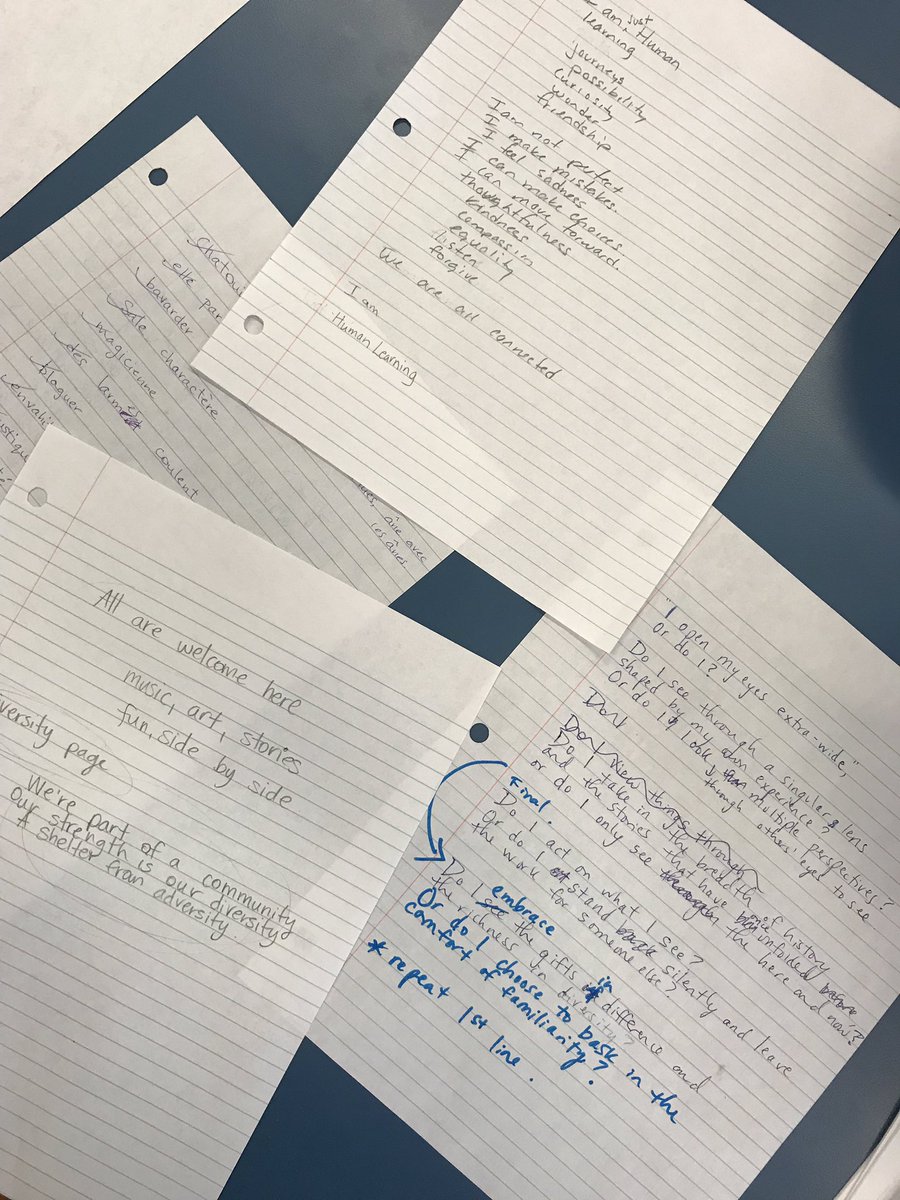 I am just Human
learning
journeys
possibility
curiosity
wonder
friendship
I am not perfect
I make mistakes.
I feel sadness
I can make choices
I can move forward
thoughtfulness
kindness
compassion
equality
listen
forgive
We are all connected
I am
Human Learning
elle par
bavarder
Sale charactère
magicienne
des larmes coulent
bloquer
envahi
âne avec
les ânes
All are welcome here
music, art, stories
fun, side by side
versity page
We're part of a community
Our strength is our diversity
A shelter from adversity.
"I open my eyes extra-wide,"
Or do I?
Do I see through a singular lens
shaped by my own experience?
Or do I look through multiple perspectives?
through others' eyes to see
Do I
Do I view things through
Do I take in the breadth of history
and the stories that have unfolded before
or do I only see the here and now?
Final.
Do I act on what I see?
Or do I stand back silently and leave
the work for someone else?
Do I see embrace the gifts of in difference and
the richness in diversity?
Or do I choose to bask in the
comfort of familiarity?
* repeat 1st line.